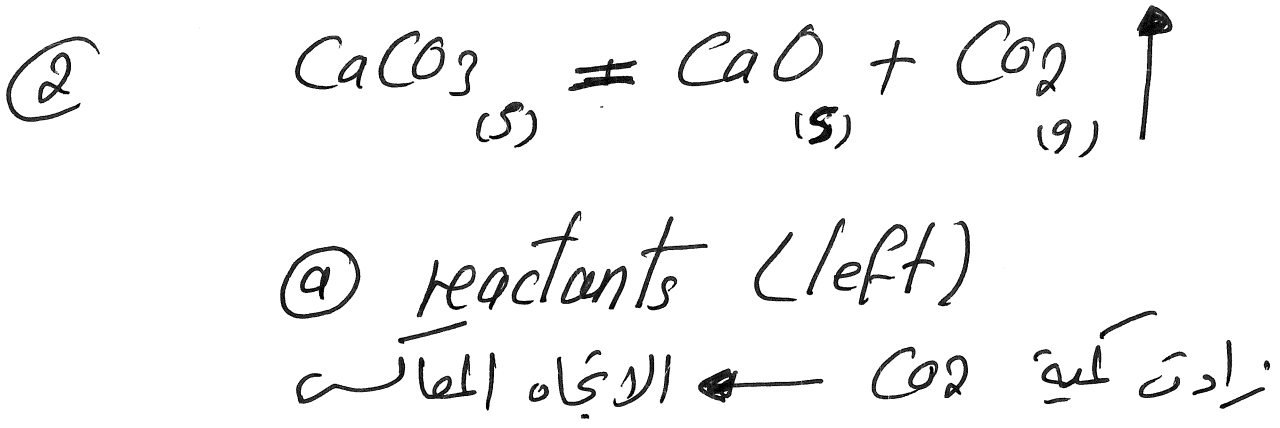 ② CaCO3(s) ⇌ CaO(s) + CO2(g) ↑
ⓐ reactants (left)
زادت كمية CO2 ← الاتجاه المعاكس